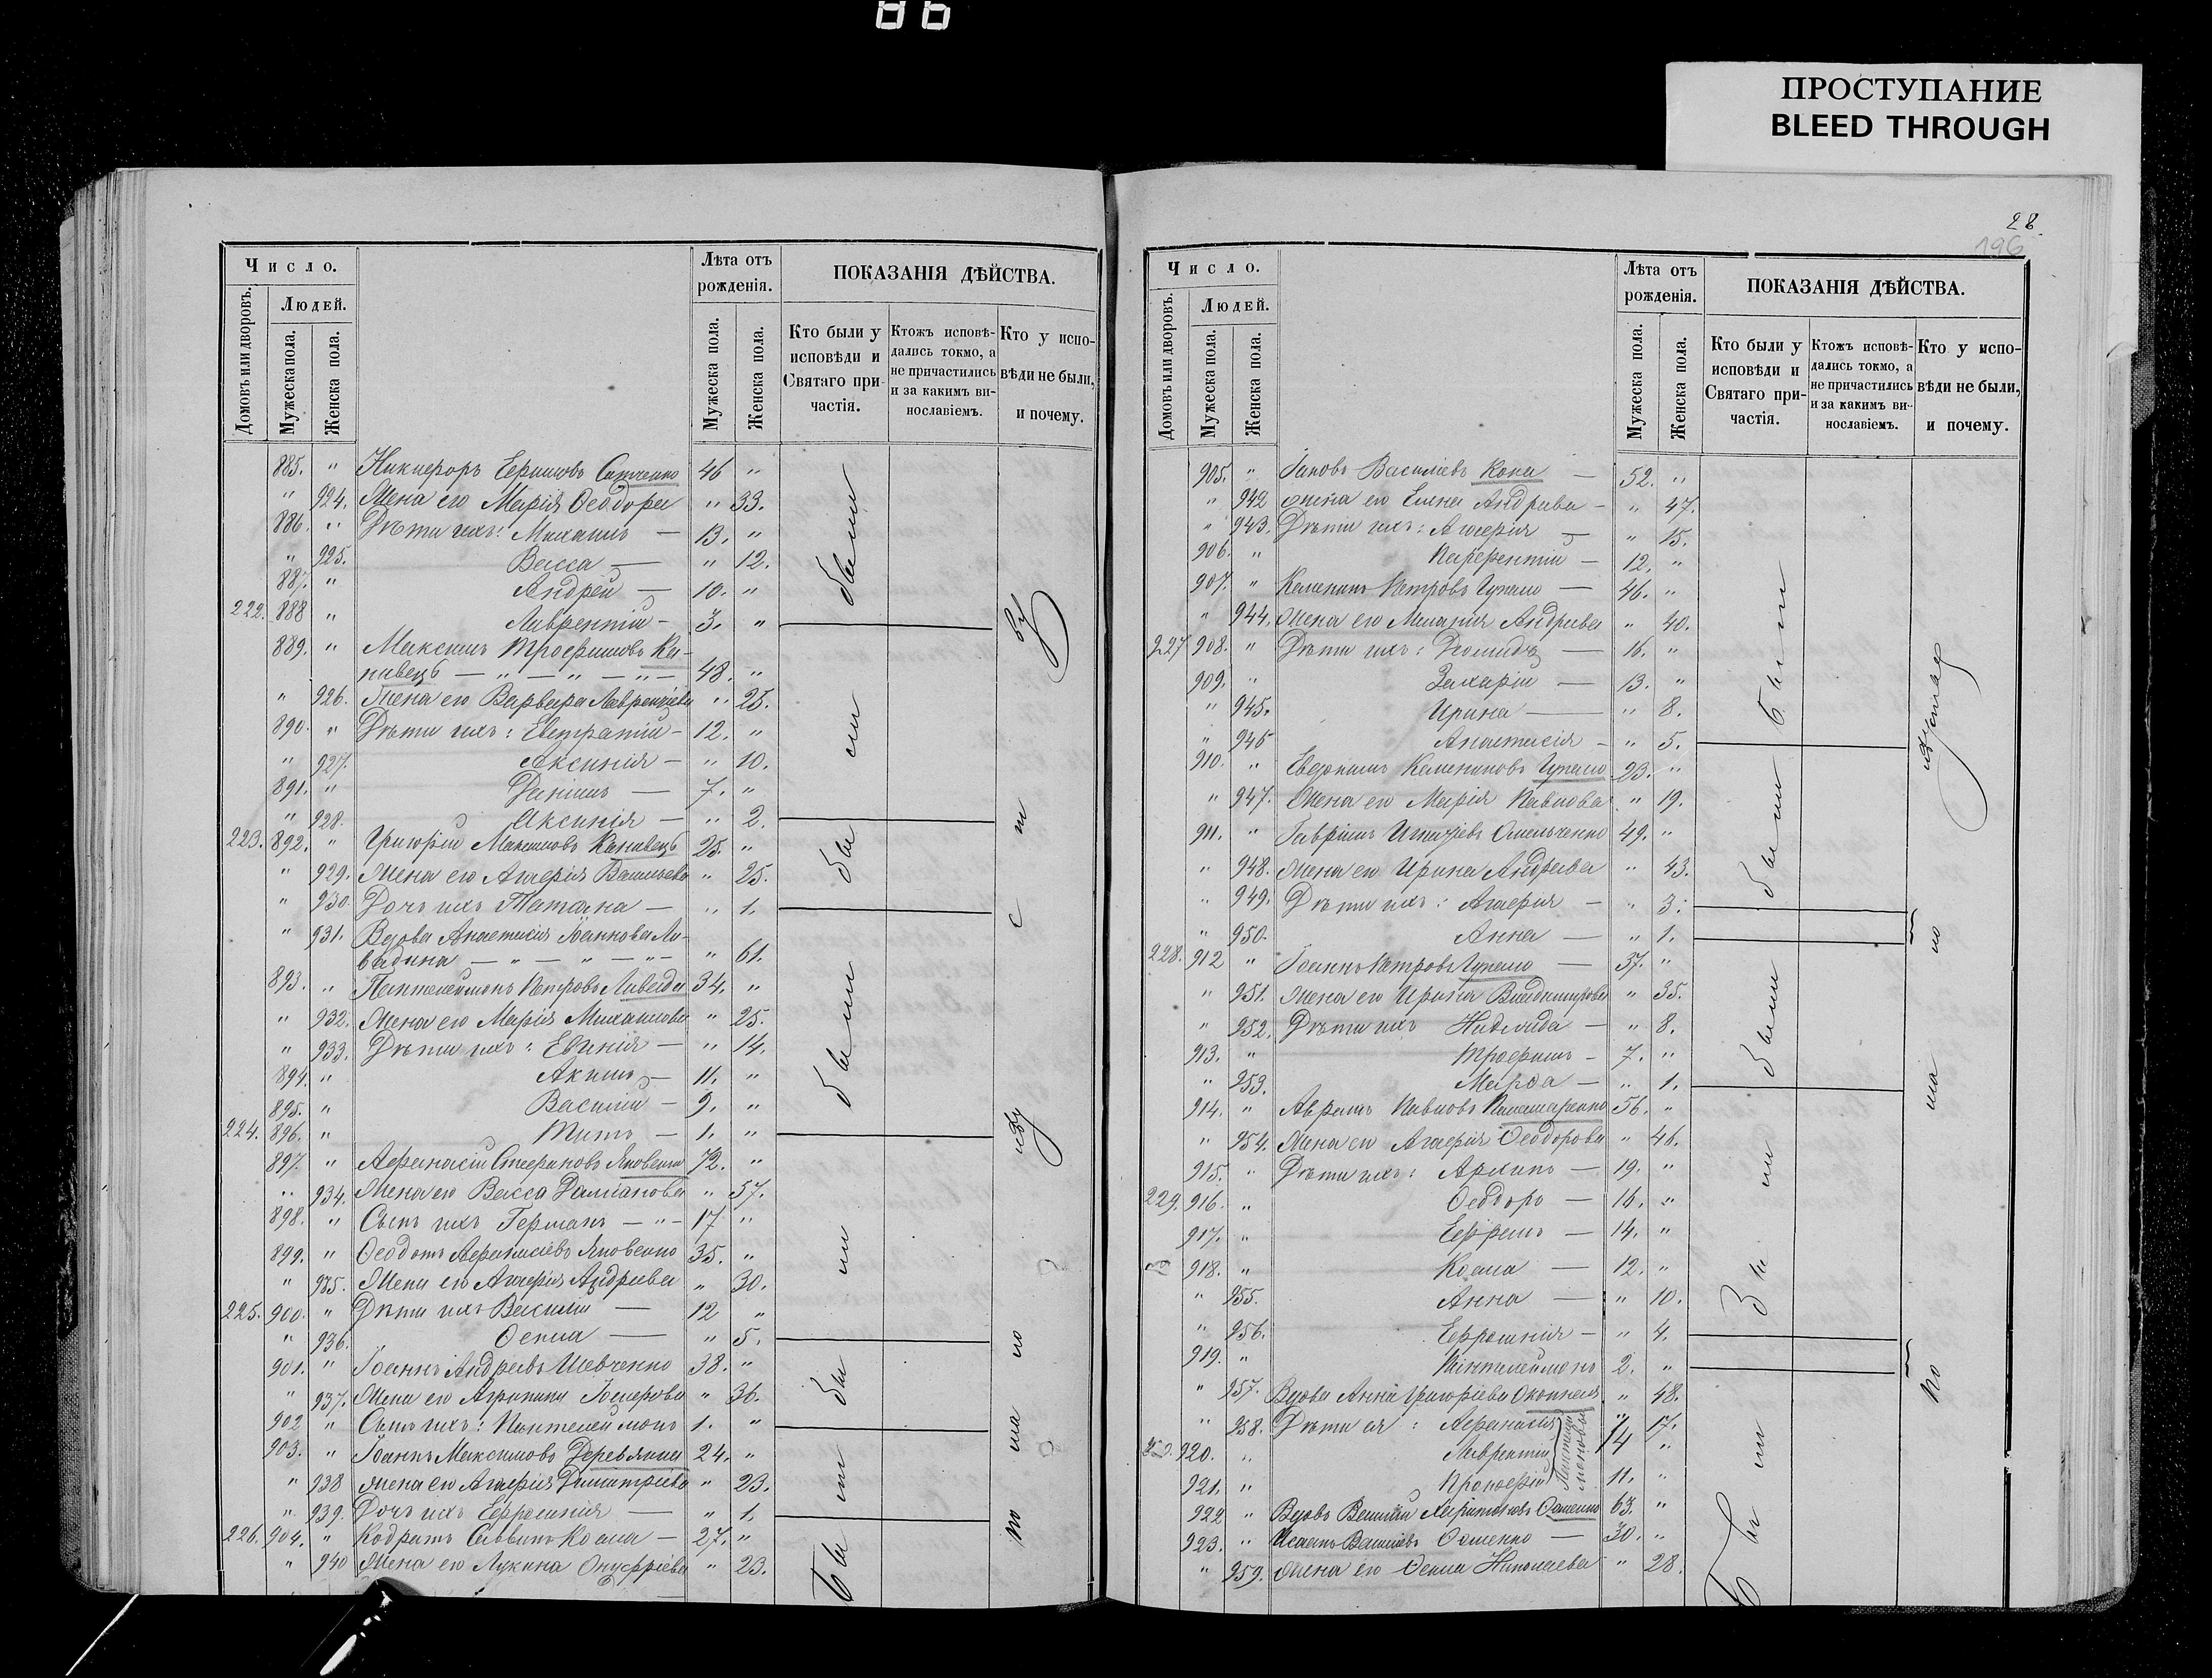 86
ПРОСТУПАНИЕ
BLEED THROUGH
Число.
Домовъ или дворовъ.
Людей.
Мужеска пола.
Женска пола.
Лѣта отъ рожденія.
Мужеска пола.
Женска пола.
ПОКАЗАНІЯ ДѢЙСТВА.
Кто были у исповѣди и Святаго причастія.
Ктожъ исповѣдались токмо, а не причастились и за какимъ винославіемъ.
Кто у исповѣди не были, и почему.
885. " Никифоръ Ефимовъ 46 "
" 924. Жена его Марія Ѳеодора " 33.
886. " Дѣти ихъ: Михаилъ — 13. "
" 925. Васса — " 12.
887. " Андрей — 10. "
222. 888 " Лаврентій - 3. "
889. " Максимъ Трофимовъ Ка-
нивецъ — " — " — " — 48. "
" 926. Жена его Варвара Лаврентіева " 25.
890. " Дѣти ихъ: Евстратій - 12. "
" 927. Аксинія — " 10.
891. " Даніилъ — 7. "
" 928. Аксинія — " 2.
223. 892. " Григорій Максимовъ Канивецъ 25. "
" 929. Жена его Агафія Васильева " 25.
" 930. Дочь ихъ Татіана — " 1.
" 931. Вдова Анастасія Іоаннова Ли-
вадина — " — " — " — " 61.
893. " Пантелеимонъ Петровъ Ливада 34. "
" 932. Жена его Марія Михаилова " 25.
" 933. Дѣти ихъ: Евгинія — " 14.
894. " Акимъ — 11. "
895. " Василій — 9. "
224. 896. " Титъ — 1. "
897. " Афанасій Стефановъ Яковенко 72. "
" 934. Жена его Васса Даміанова " 57.
898. " Сынъ ихъ Германъ — " — 17 "
899. " Ѳеодотъ Афанасіевъ Яковенко 35. "
" 935. Жена его Агафія Андреева " 30.
225. 900. " Дѣти ихъ Василій — 12 "
" 936. Ѳекла — " 5.
901. " Іоаннъ Андреевъ Шевченко 38. "
" 937. Жена его Агрипина " 36.
902 " Сынъ ихъ: Пантелеимонъ 1. "
903. " Іоаннъ Максимовъ Деревянка 24. "
" 938 Жена его Агафія Димитріева " 23.
" 939. Дочь ихъ Ефросинія — " 1.
226. 904. " Кодратъ Саввинъ Косма — 27. "
" 940 Жена его Лукина Онуфріева " 23.
28.
196
Число.
Домовъ или дворовъ.
Людей.
Мужеска пола.
Женска пола.
Лѣта отъ рожденія.
Мужеска пола.
Женска пола.
ПОКАЗАНІЯ ДѢЙСТВА.
Кто были у исповѣди и Святаго причастія.
Ктожъ исповѣдались токмо, а не причастились и за какимъ винославіемъ.
Кто у исповѣди не были, и почему.
905. " Іаковъ Василіевъ Кона — 52. "
" 942 Жена его Елена Андреева - " 47.
" 943. Дѣти ихъ: Агафія — " 15.
906. " Парфентій — 12. "
907. " Каленикъ Петровъ Гупало — 46. "
" 944. Жена его Меланія Андреева " 40.
227 908. " Дѣти ихъ: Діомидъ — 16. "
909. " Захарій — 13. "
" 945. Ирина — " 8.
" 946 Анастасія - " 5.
910. " Евдокимъ Калениковъ Гупало 23. "
" 947. Жена его Марія Павлова " 19.
911. " Гавріилъ Игнатіевъ Омельченко 49. "
" 948. Жена его Ирина Андреева " 43.
" 949. Дѣти ихъ: Агафія — " 3.
" 950. Анна — " 1.
228. 912 " Іоаннъ Петровъ Гупало — 37. "
" 951. Жена его Ирина Владимирова " 35.
" 952. Дѣти ихъ Надежда — " 8.
913. " Трофимъ - 7. "
" 953. Марѳа — " 1.
914. " Аврамъ Павловъ 56. "
" 954. Жена его Агафія Ѳеодорова " 46.
915. " Дѣти ихъ: Архипъ — 19. "
229. 916. " Ѳеодоръ — 16. "
917. " Ефремъ — 14. "
918. " Косма — 12. "
" 955. Анна — " 10.
" 956. Ефросинія — " 4.
919. " Пантелеимонъ 2. "
" 957. Вдова Анна Григоріева " 48.
" 958. Дѣти ея: Афанасія " 17.
920. " Лаврентій 14 "
921. " Прокофій 11. "
922 " Вдовъ Василій Харитоновъ 63. "
923. " Исаакъ Василіевъ — 30. "
" 959. Жена его Ѳекла Николаева " 28.